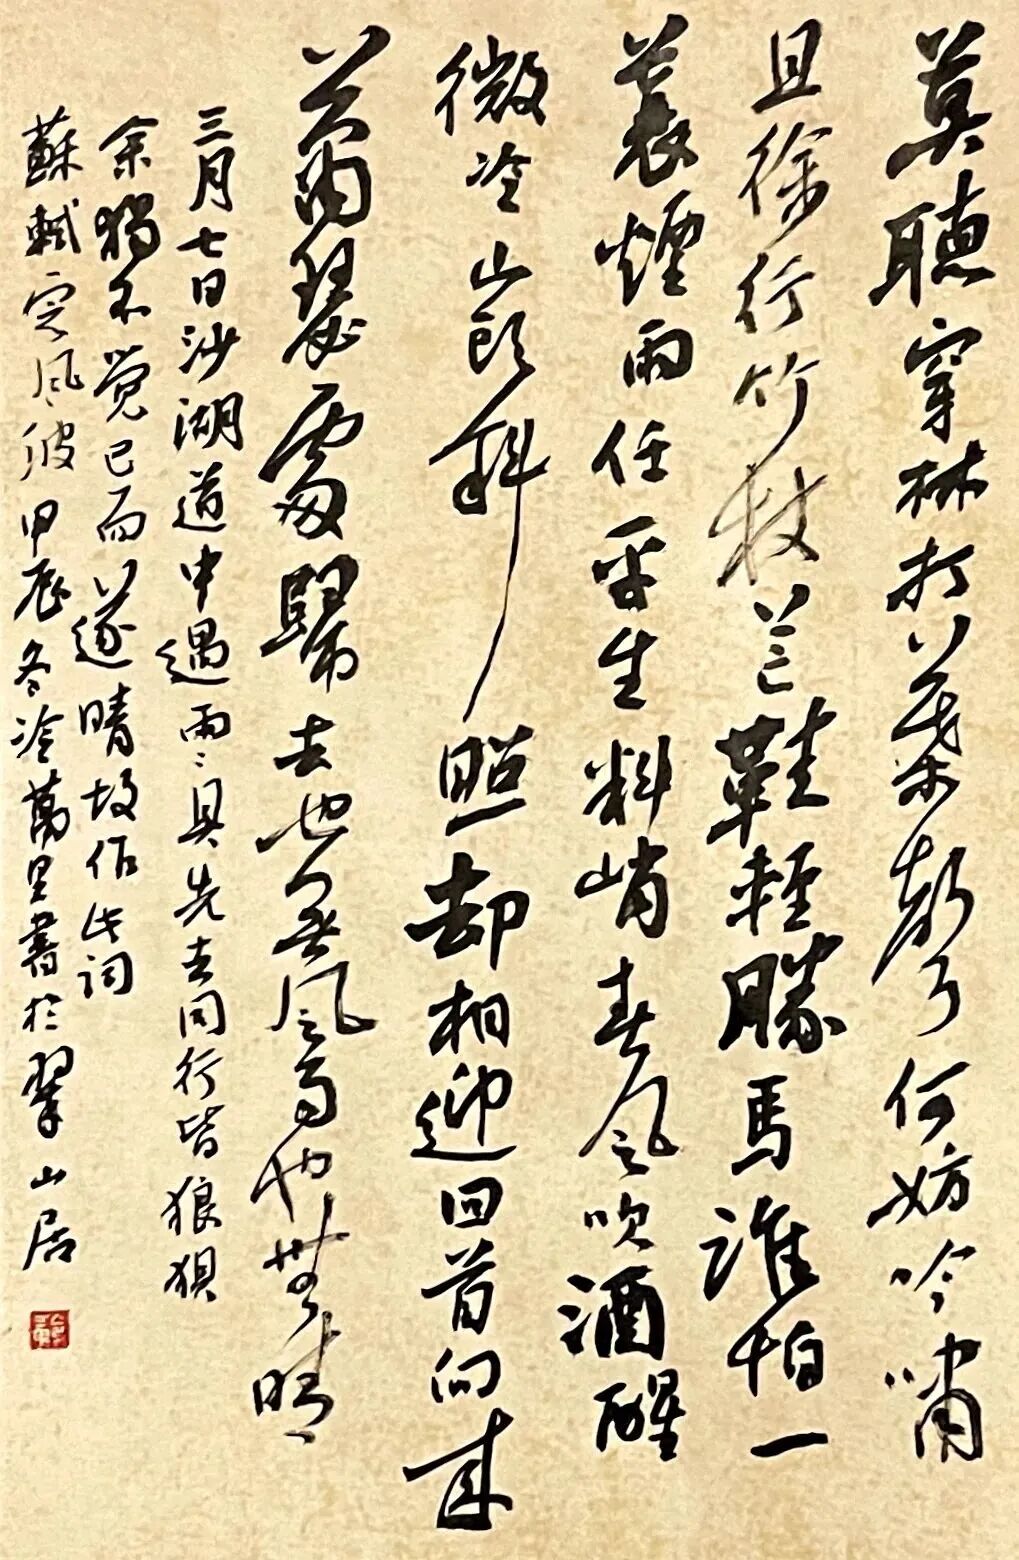 莫聽穿林打葉聲何妨吟嘯
且徐行竹杖芒鞋輕勝馬誰怕一
蓑煙雨任平生料峭春風吹酒醒
微冷山頭斜照却相迎回首向來
蕭瑟處歸去也無風雨也無晴
三月七日沙湖道中遇雨〻具先去同行皆狼狽
余獨不觉已而遂晴故作此詞
蘇軾定風波甲辰冬冷萬里書於翠山居